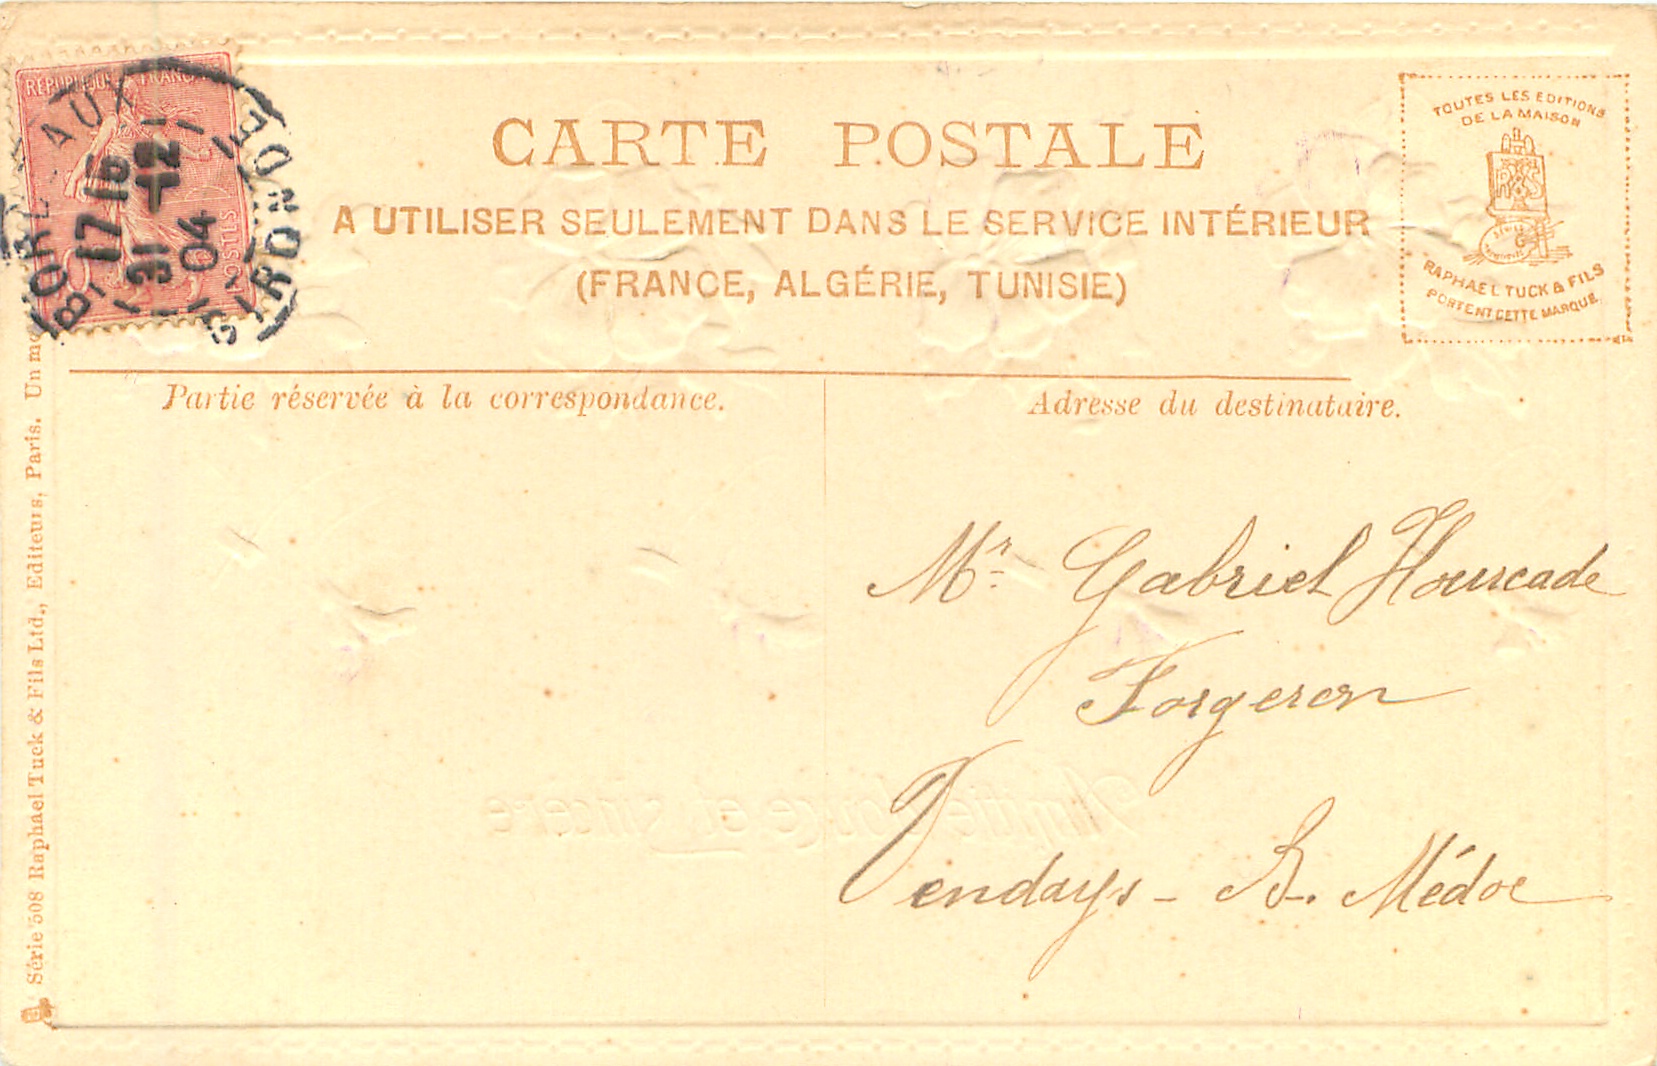 RÉPUBLIQUE FRANÇAISE
POSTES
BORDEAUX
17 15
31 -12
04
GIRONDE
CARTE POSTALE
A UTILISER SEULEMENT DANS LE SERVICE INTÉRIEUR
(FRANCE, ALGÉRIE, TUNISIE)
TOUTES LES EDITIONS
DE LA MAISON
RAPHAEL TUCK & FILS
PORTENT CETTE MARQUE.
Partie réservée à la correspondance.
Adresse du destinataire.
Mr. Gabriel Hourcade
Forgeron
Vendays - B. Médoc
Amitié douce et sincère
Série 508 Raphael Tuck & Fils Ltd., Editeurs, Paris. Un